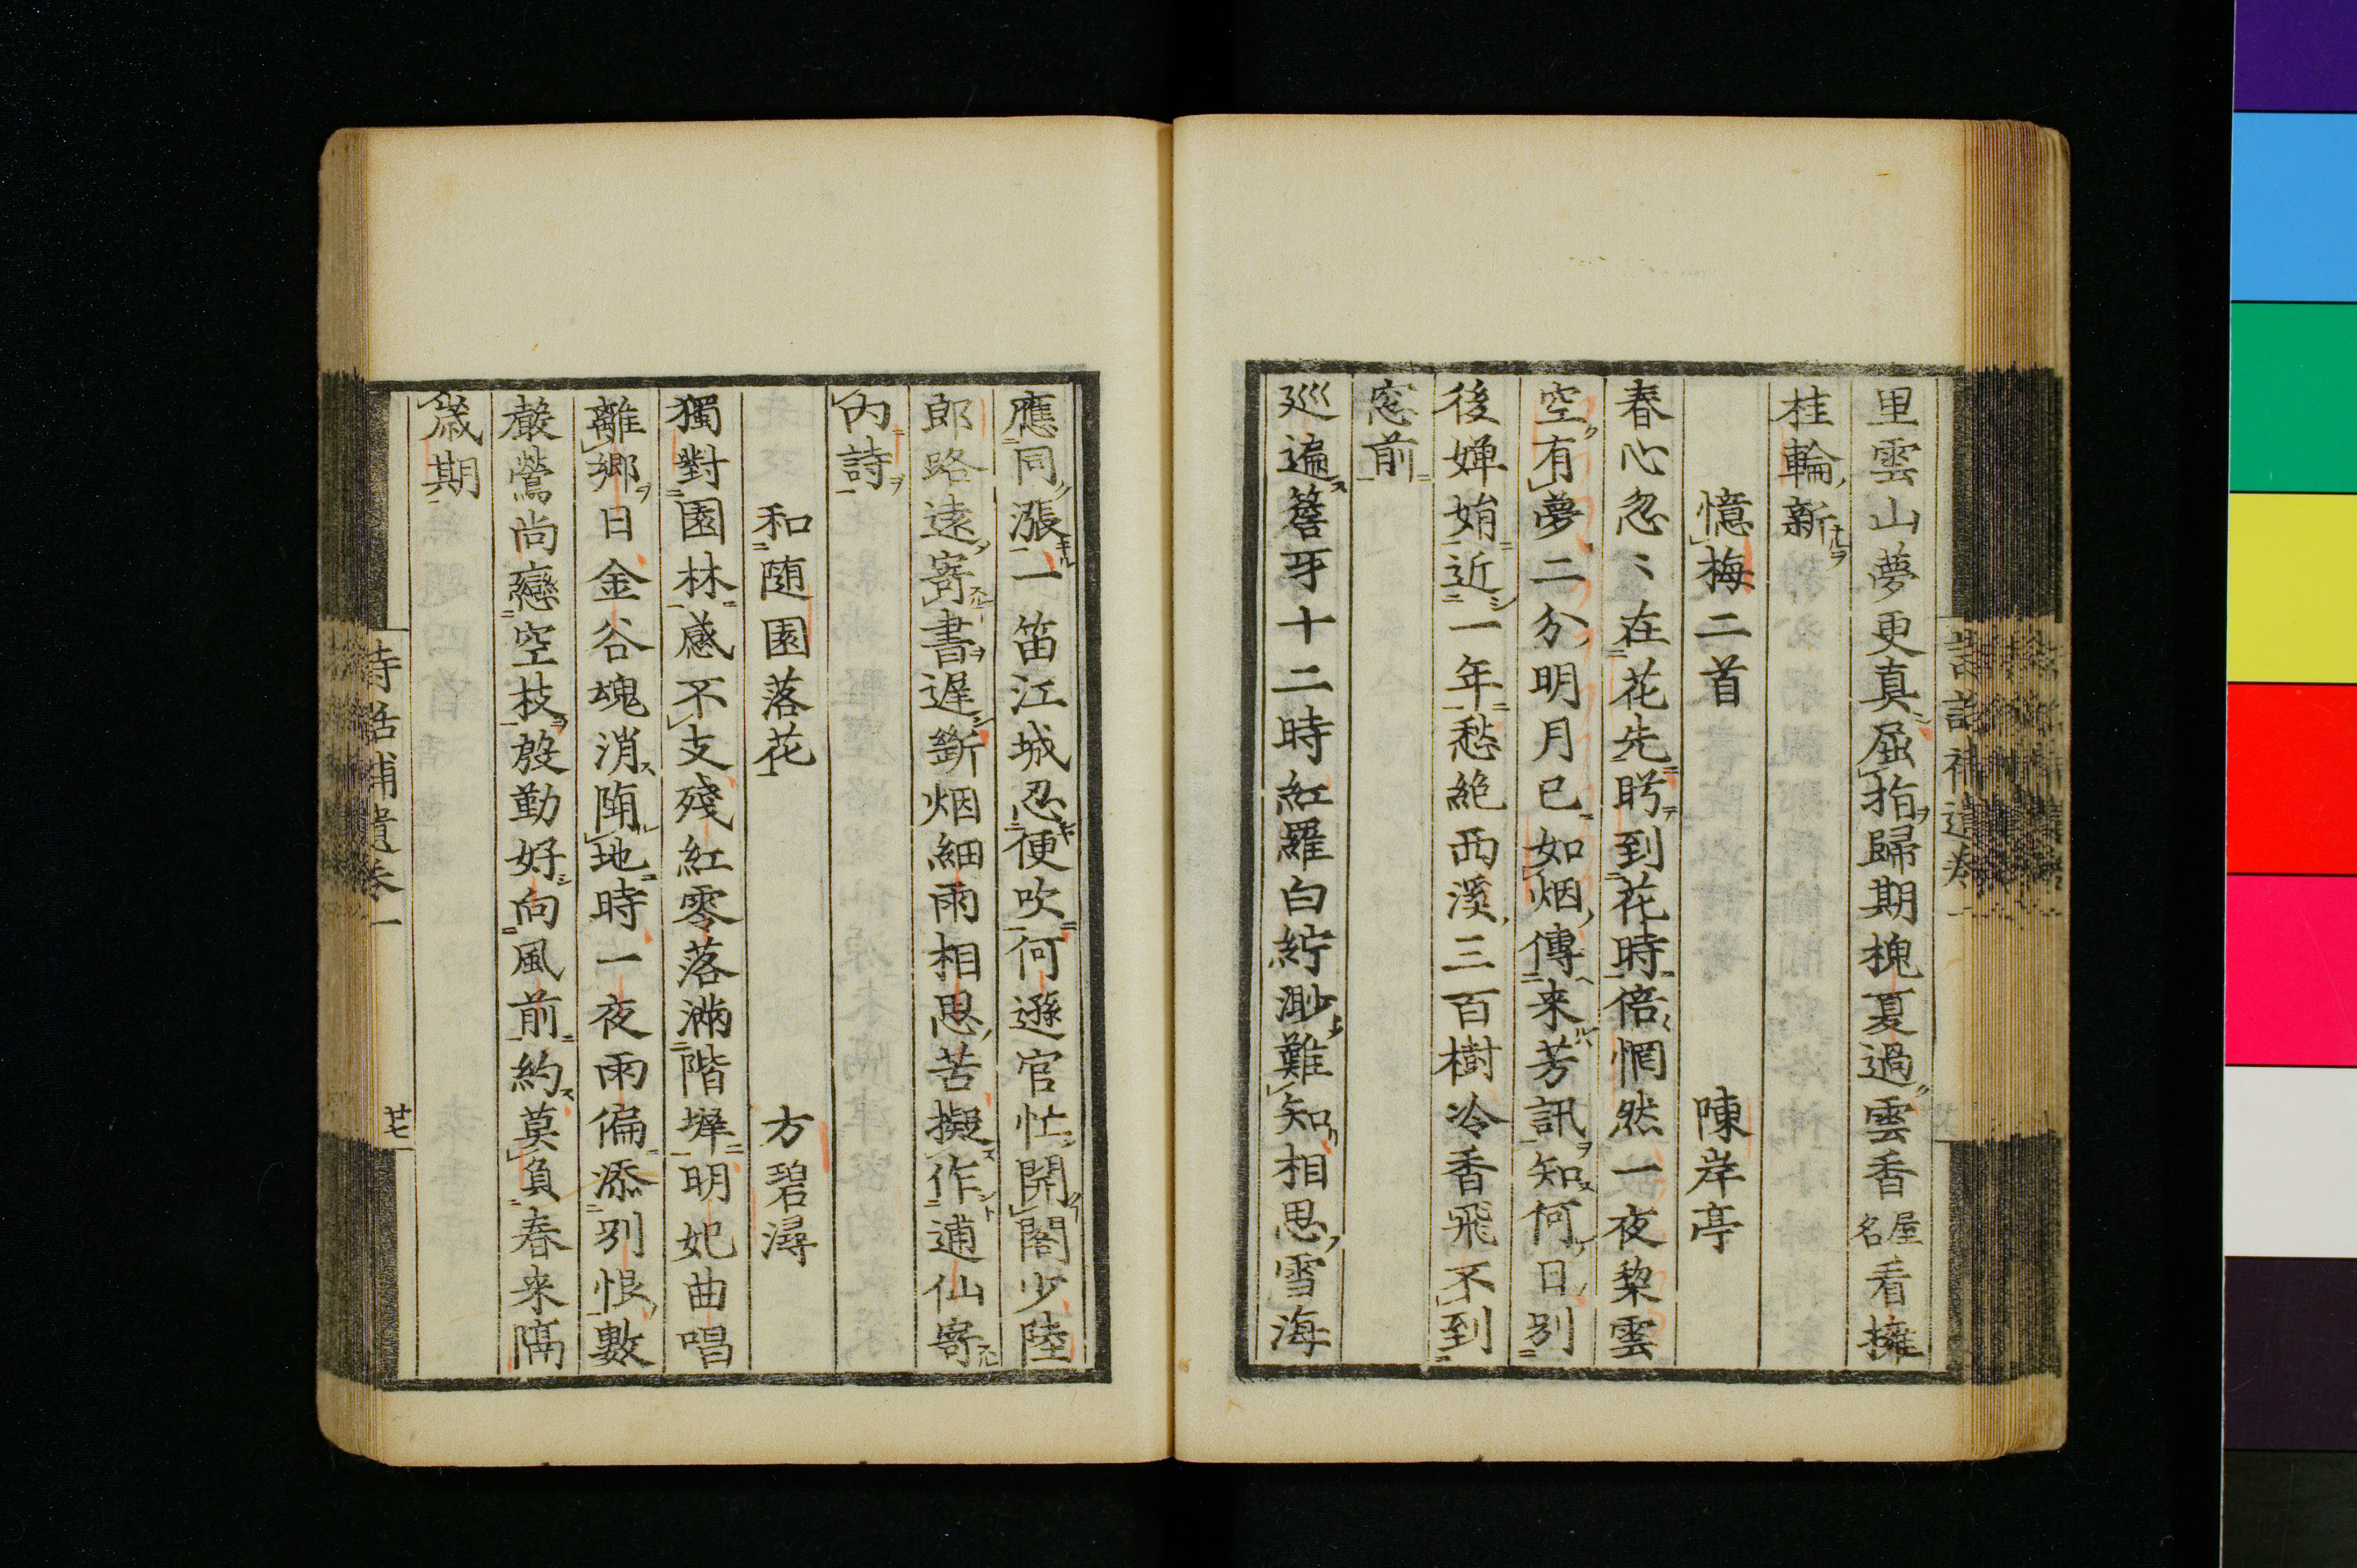 里雲山夢更真屈指歸期槐夏過雲香屋名看擁
桂輪新
憶梅二首 陳岸亭
春心忽〻在花先盻到花時倍惘然一夜梨雲
空有夢二分明月已如烟傳来芳訊知何日別
後嬋娟近一年愁絶西溪三百樹冷香飛不到
窓前
廵遍簷牙十二時紅羅白紵渺難知相思雪海
應同漲一笛江城忍便吹何遜官忙開閣少陸
郎路遠寄書遅斷烟細雨相思苦擬作逋仙寄
內詩
和随園落花 方碧潯
獨對園林感不支殘紅零落滿階墀明妃曲唱
離郷日金谷魂消墮地時一夜雨偏添別恨數
聲鶯尚戀空枝殷勤好向風前約莫負春来隔
歲期
詩話補遺卷一
廿七